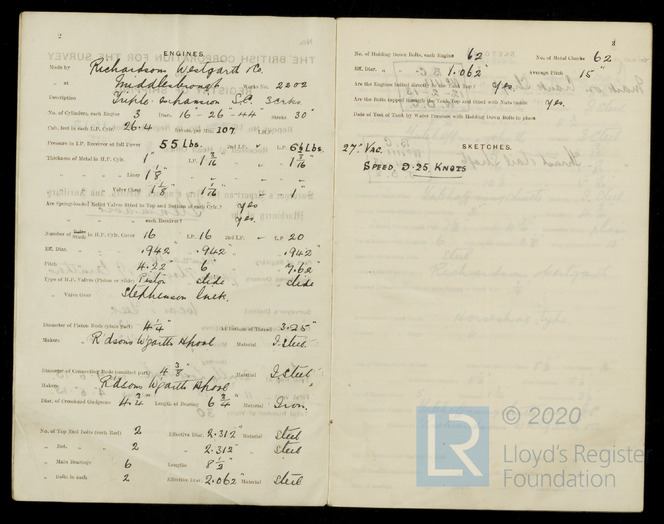 2
ENGINES.
Made by Richardsons Westgarth & Co.
" at Middlesbrough Works No. 2202
Description Triple expansion S.C. Screw
No. of Cylinders, each Engine 3 Diar. 16 - 26 - 44" Stroke 30"
Cub. feet in each L.P. Cylr. 26.4 Revols. per Min. 107 I.H.P.
Pressure in I.P. Receiver at Full Power 55 Lbs. 2nd I.P. " L.P. 6½ Lbs.
Thickness of Metal in H.P. Cylr. 1" I.P. 1 3/16 " L.P. 1 3/16"
" " Liner 1 1/8" " " "
" " Valve Chest 1 1/8" " 1 1/16" " " 1"
Are Spring-loaded Relief Valves fitted to Top and Bottom of each Cylr.? yes
" " " each Receiver? yes.
Number of Bolts Studs in H.P. Cylr. Cover 16 I.P. 16 2nd I.P. - L.P. 20
Eff. Diar. " .942" .942" .942"
Pitch 4.22" 6" 7.62"
Type of H.P. Valves (Piston or slide) Piston slide slide
" Valve Gear Stephenson link.
Diameter of Piston Rods (plain part) 4 1/4" At Bottom of Thread 3.25"
Makers R'dsons W'garth H'pool Material I. Steel.
Diameter of Connecting Rods (smallest part) 4 3/8" Material I. Steel
Makers R'dsons W'garth H'pool
Diar. of Crosshead Gudgeons 4 3/4" Length of Bearing 6 3/4" Material Iron.
No. of Top End Bolts (each Rod) 2 Effective Diar. 2.312" Material Steel
" Bot. " " 2 " 2.312" " Steel
" Main Bearings 6 Lengths 8 1/2"
" Bolts in each 2 Effective Diar. 2.062" Material Steel
3
No. of Holding Down Bolts, each Engine 62 No. of Metal Chocks 62
Eff. Diar. " 1.062" Average Pitch 15"
Are the Engines bolted directly to the Tank Top? Yes.
Are the Bolts tapped through the Tank Top and fitted with Nuts inside Yes.
Date of Test of Tank by Water Pressure with Holding Down Bolts in place
SKETCHES.
27" Vac.
SPEED 9.25 KNOTS
LR © 2020
Lloyd's Register
Foundation